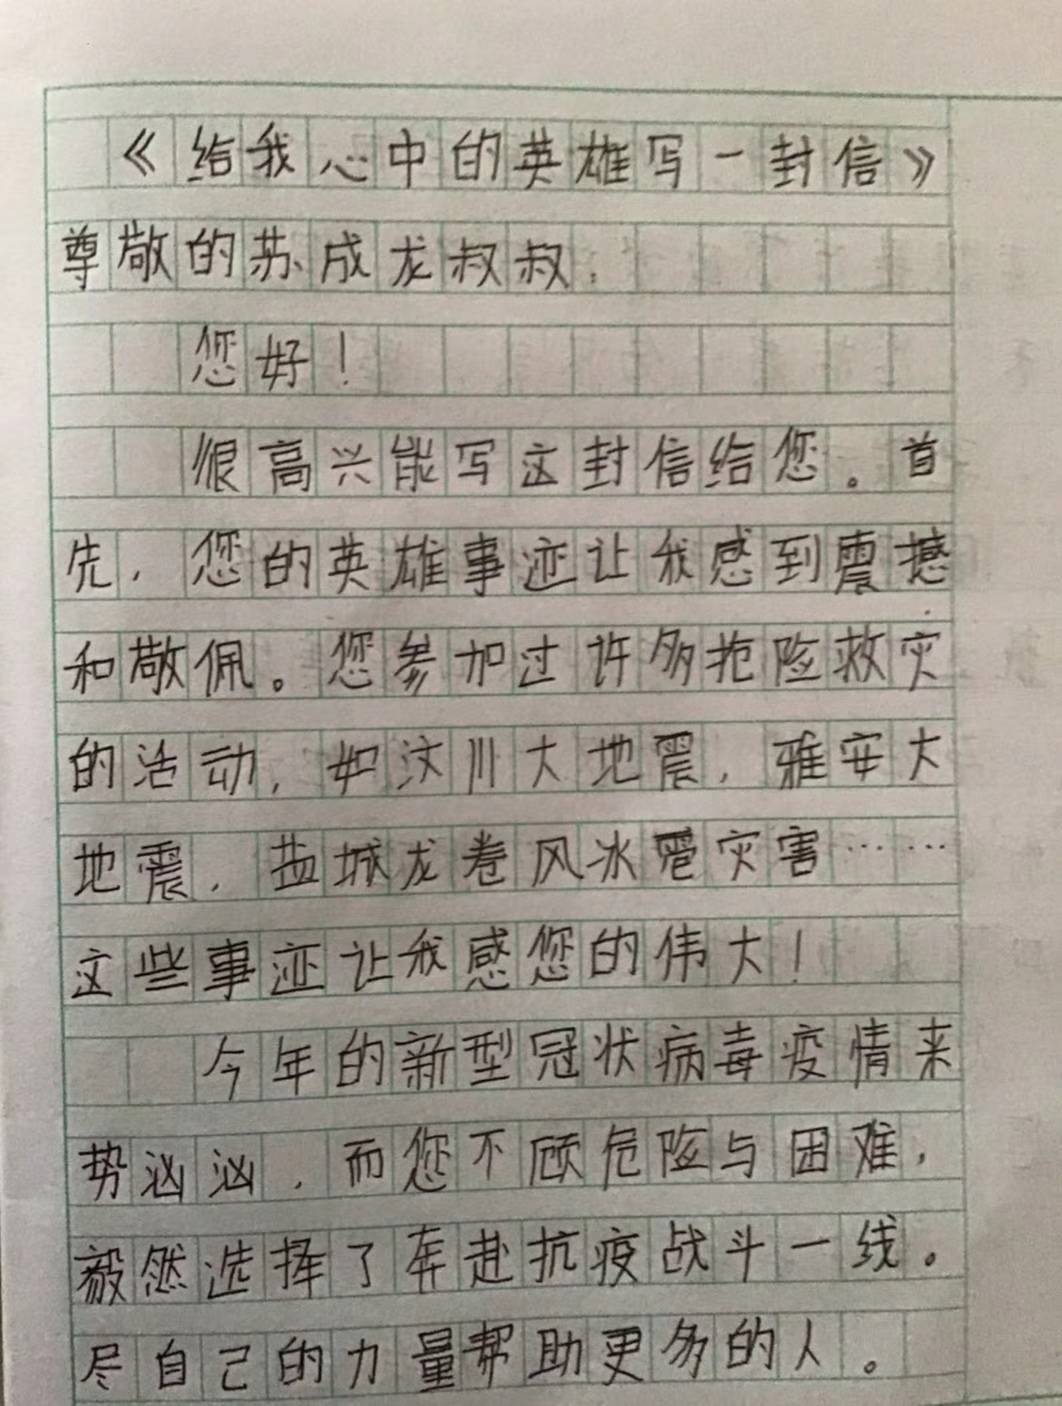 《给我心中的英雄写一封信》
尊敬的苏成龙叔叔：
您好！
很高兴能写这封信给您。首
先，您的英雄事迹让我感到震撼
和敬佩。您参加过许多抢险救灾
的活动，如汶川大地震，雅安大
地震，盐城龙卷风冰雹灾害……
这些事迹让我感您的伟大！
今年的新型冠状病毒疫情来
势汹汹，而您不顾危险与困难，
毅然选择了奔赴抗疫战斗一线。
尽自己的力量帮助更多的人。